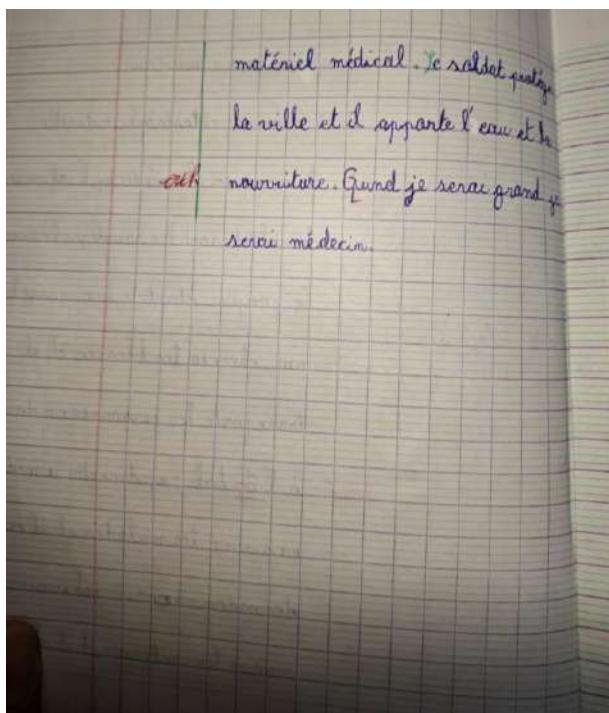 matériel médical. Le soldat protège
la ville et il apporte l'eau et la
nourriture. Quand je serai grand je
serai médecin.